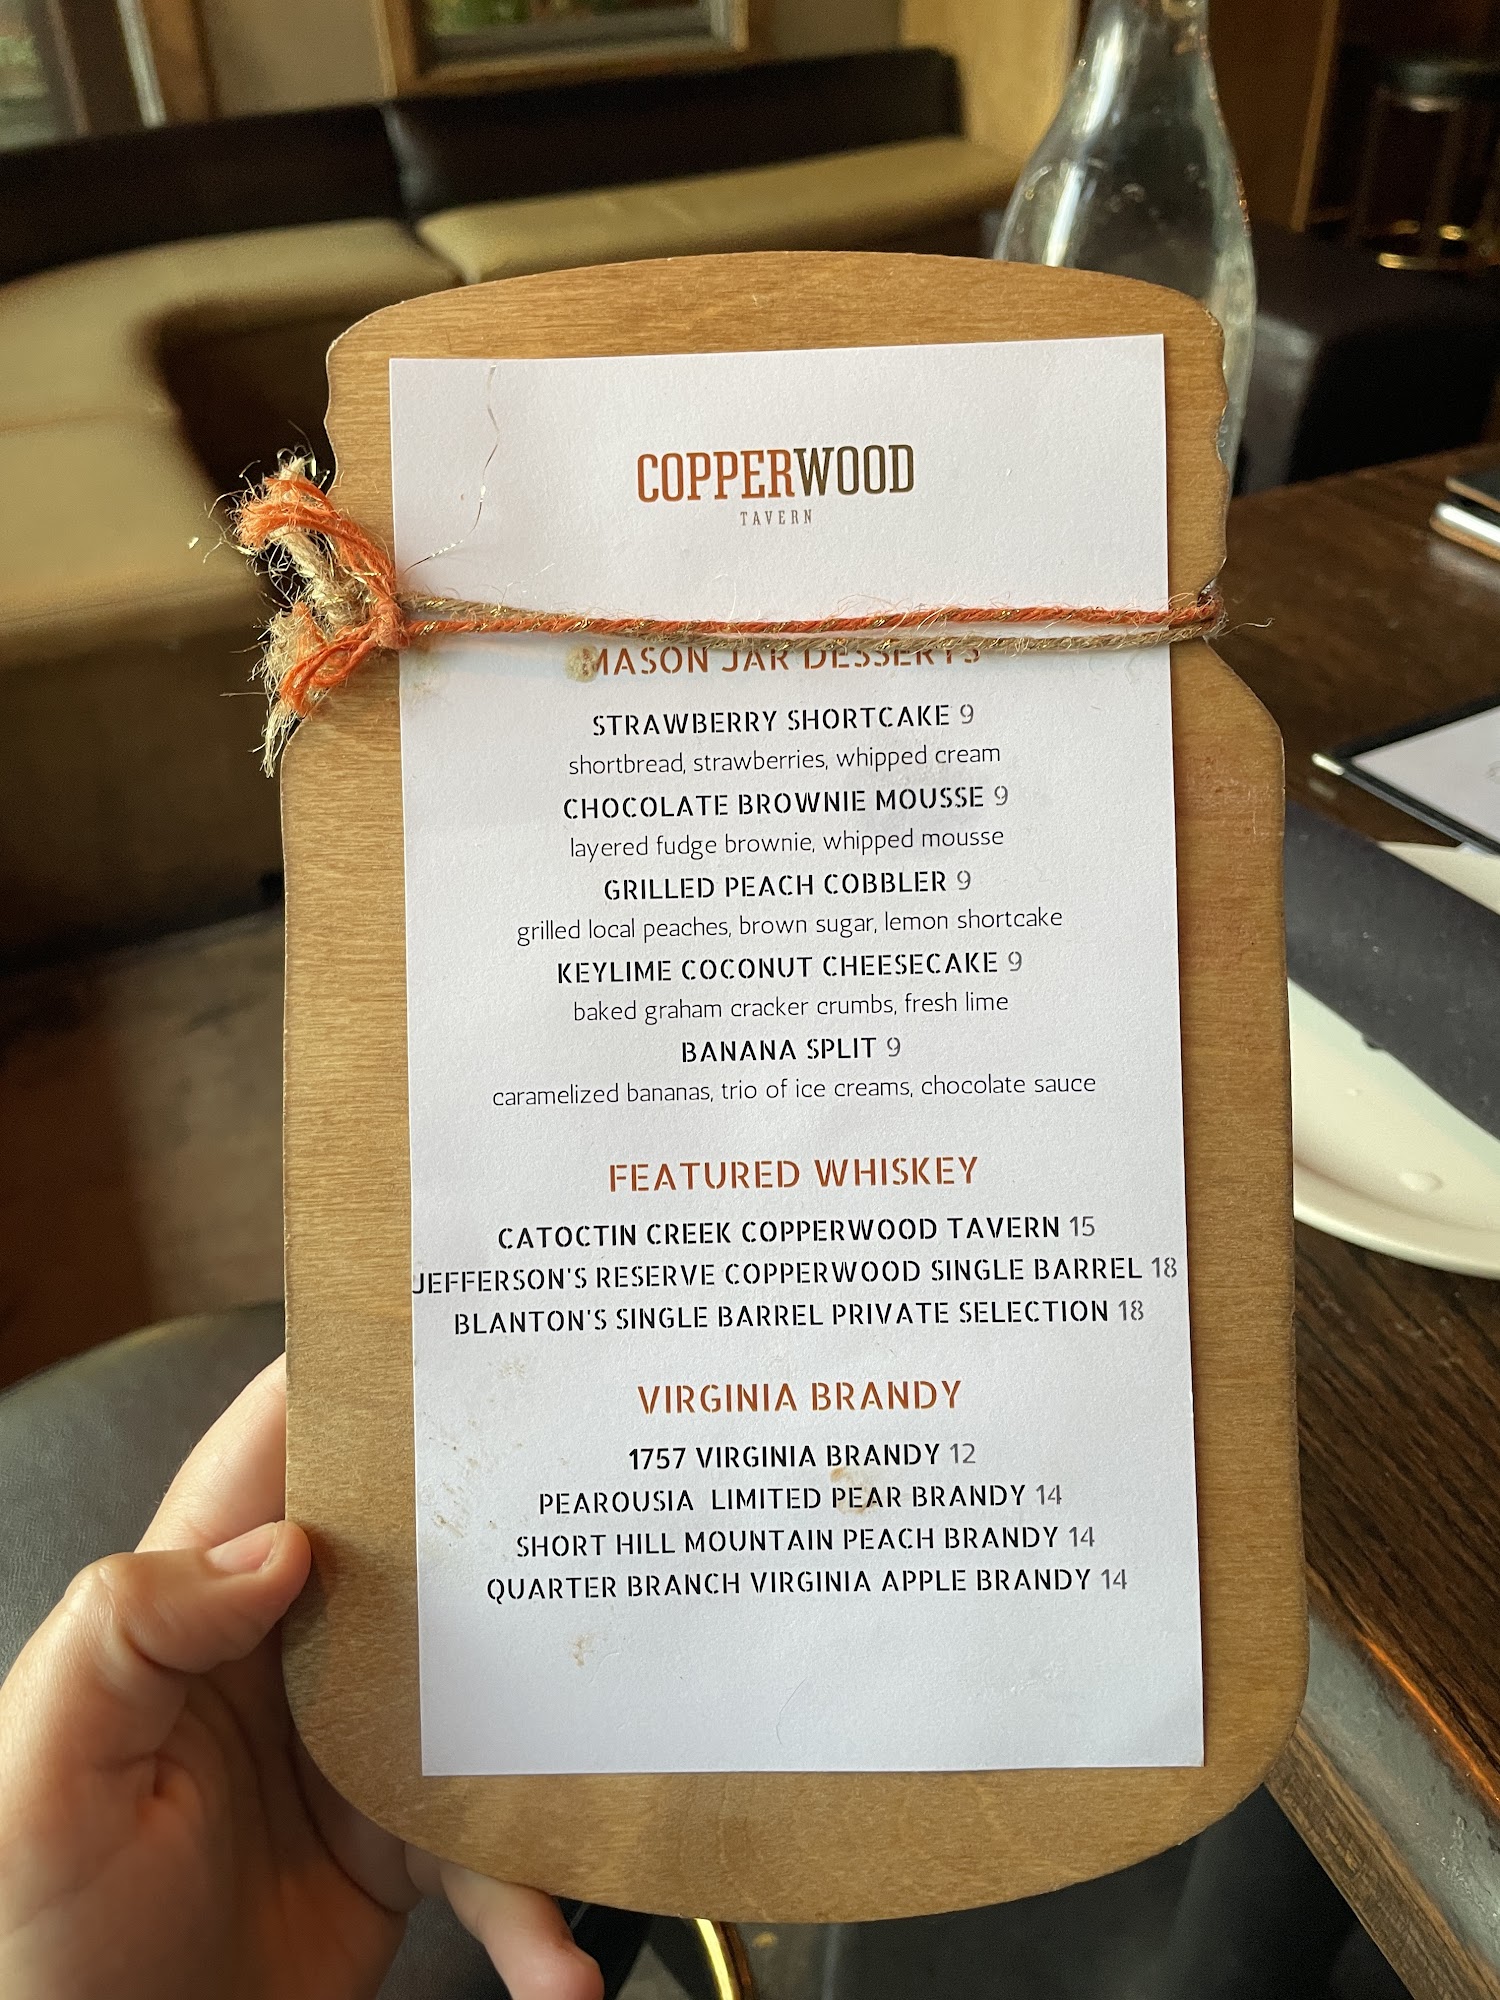 COPPERWOOD
TAVERN
MASON JAR DESSERTS
STRAWBERRY SHORTCAKE 9
shortbread, strawberries, whipped cream
CHOCOLATE BROWNIE MOUSSE 9
layered fudge brownie, whipped mousse
GRILLED PEACH COBBLER 9
grilled local peaches, brown sugar, lemon shortcake
KEYLIME COCONUT CHEESECAKE 9
baked graham cracker crumbs, fresh lime
BANANA SPLIT 9
caramelized bananas, trio of ice creams, chocolate sauce
FEATURED WHISKEY
CATOCTIN CREEK COPPERWOOD TAVERN 15
JEFFERSON'S RESERVE COPPERWOOD SINGLE BARREL 18
BLANTON'S SINGLE BARREL PRIVATE SELECTION 18
VIRGINIA BRANDY
1757 VIRGINIA BRANDY 12
PEAROUSIA LIMITED PEAR BRANDY 14
SHORT HILL MOUNTAIN PEACH BRANDY 14
QUARTER BRANCH VIRGINIA APPLE BRANDY 14